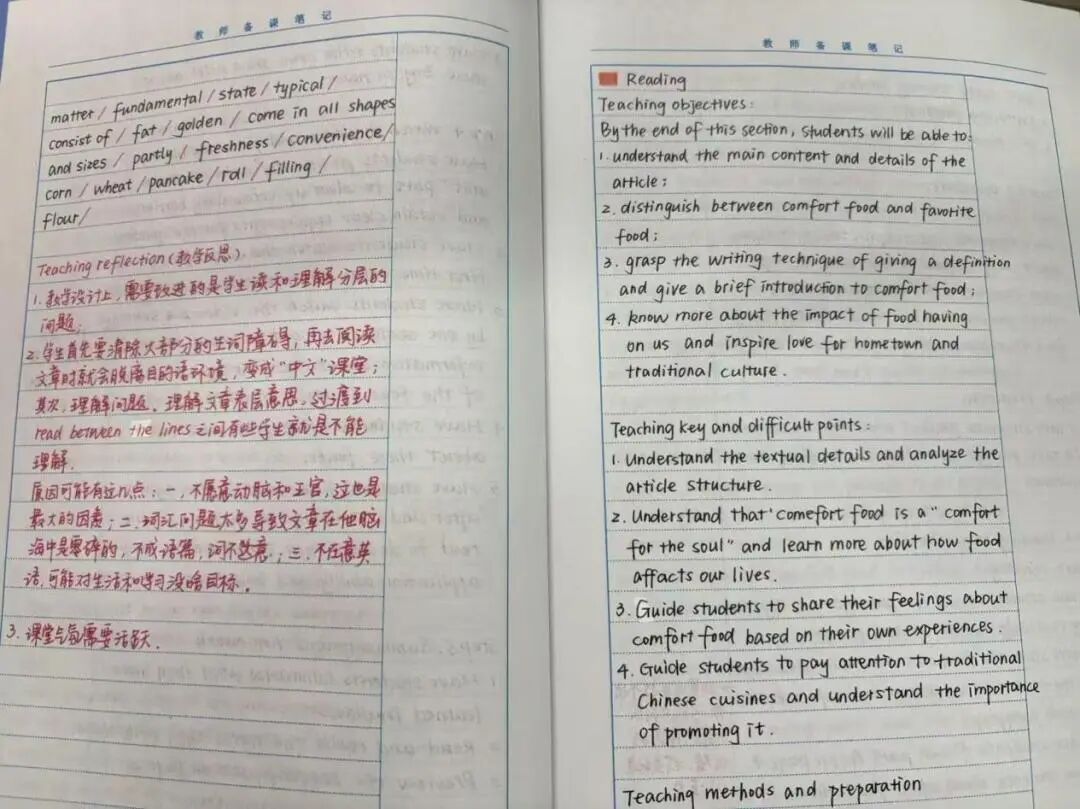 教师备课笔记
matter / fundamental / state / typical /
consist of / fat / golden / come in all shapes
and sizes / partly / freshness / convenience /
corn / wheat / pancake / roll / filling /
flour /
Teaching reflection (教学反思).
1. 教学设计上, 需要改进的是学生读和理解分层的
问题;
2. 学生首先要清除大部分的生词障碍, 再去阅读
文章时就会脱离目的语环境, 变成“中文”课堂;
其次, 理解问题. 理解文章表层意思, 过渡到
read between the lines 之间有些学生就是不能
理解.
原因可能有这几点: 一, 不愿意动脑和, 这也是
最大的因素; 二. 词汇问题太多导致文章在他脑
海中是零碎的, 不成语篇, 词不达意; 三. 不在意英
语, 可能对生活和学习没啥目标.
3. 课堂气氛需要活跃.
教师备课笔记
Reading
Teaching objectives:
By the end of this section, students will be able to:
1. understand the main content and details of the
article;
2. distinguish between comfort food and favorite
food;
3. grasp the writing technique of giving a definition
and give a brief introduction to comfort food;
4. know more about the impact of food having
on us and inspire love for hometown and
traditional culture.
Teaching key and difficult points:
1. Understand the textual details and analyze the
article structure.
2. Understand that comefort food is a "comfort
for the soul" and learn more about how food
affects our lives.
3. Guide students to share their feelings about
comfort food based on their own experiences.
4. Guide students to pay attention to traditional
Chinese cuisines and understand the importance
of promoting it.
Teaching methods and preparation